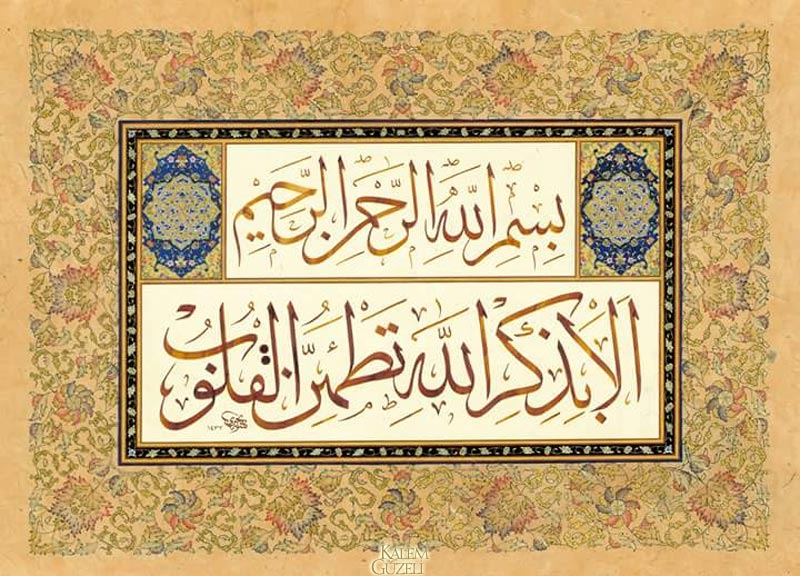 بِسْمِ اللّٰهِ الرَّحْمٰنِ الرَّحِيْمِ
اَلَا بِذِكْرِ اللّٰهِ تَطْمَئِنُّ الْقُلُوْبُ
١٤٣٢
KALEM
GÜZELİ